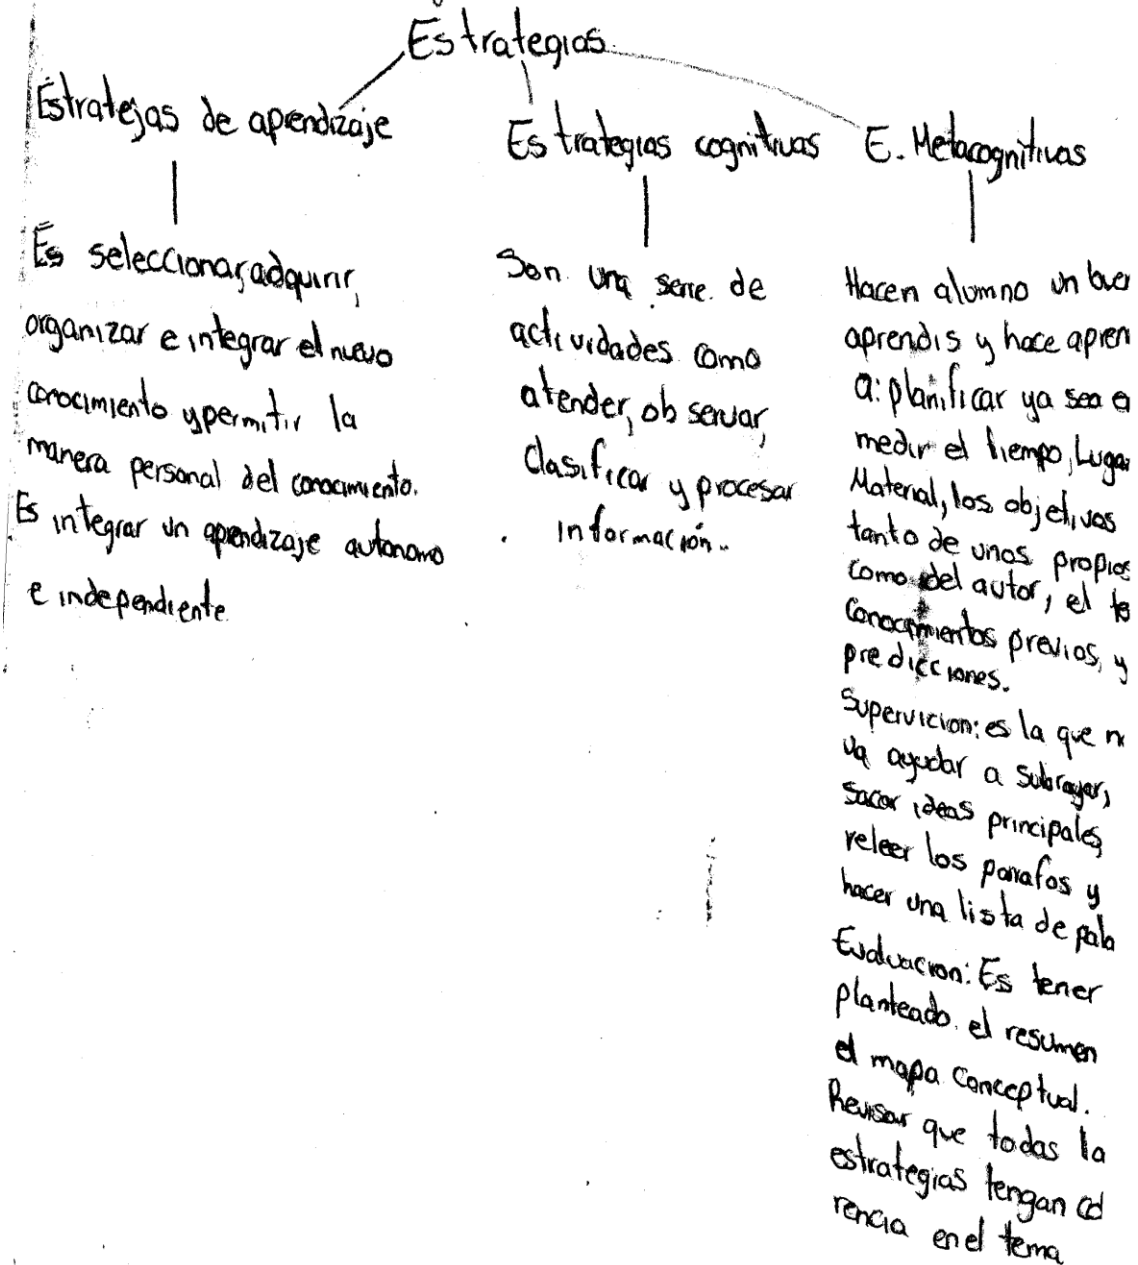 Estrategias
Estratejas de aprendizaje
Estrategias cognitivas
E. Metacognitivas
Es seleccionar, adquirir,
organizar e integrar el nuevo
conocimiento y permitir la
manera personal del conocimiento.
Es integrar un aprendizaje autonomo
e independiente
Son una serie de
actividades como
atender, observar,
Clasificar y procesar
información.
Hacen alumno un buen
aprendis y hace apren
a: planificar ya sea e
medir el tiempo, Lugar
Material, los objetivos
tanto de unos propios
como del autor, el te
conocimientos previos, y
predicciones.
Supervicion: es la que n
va ayudar a subrayar,
sacar ideas principales,
releer los parrafos y
hacer una lista de pala
Evaluacion: Es tener
planteado el resumen
el mapa conceptual.
Revisar que todas la
estrategias tengan co
rencia en el tema